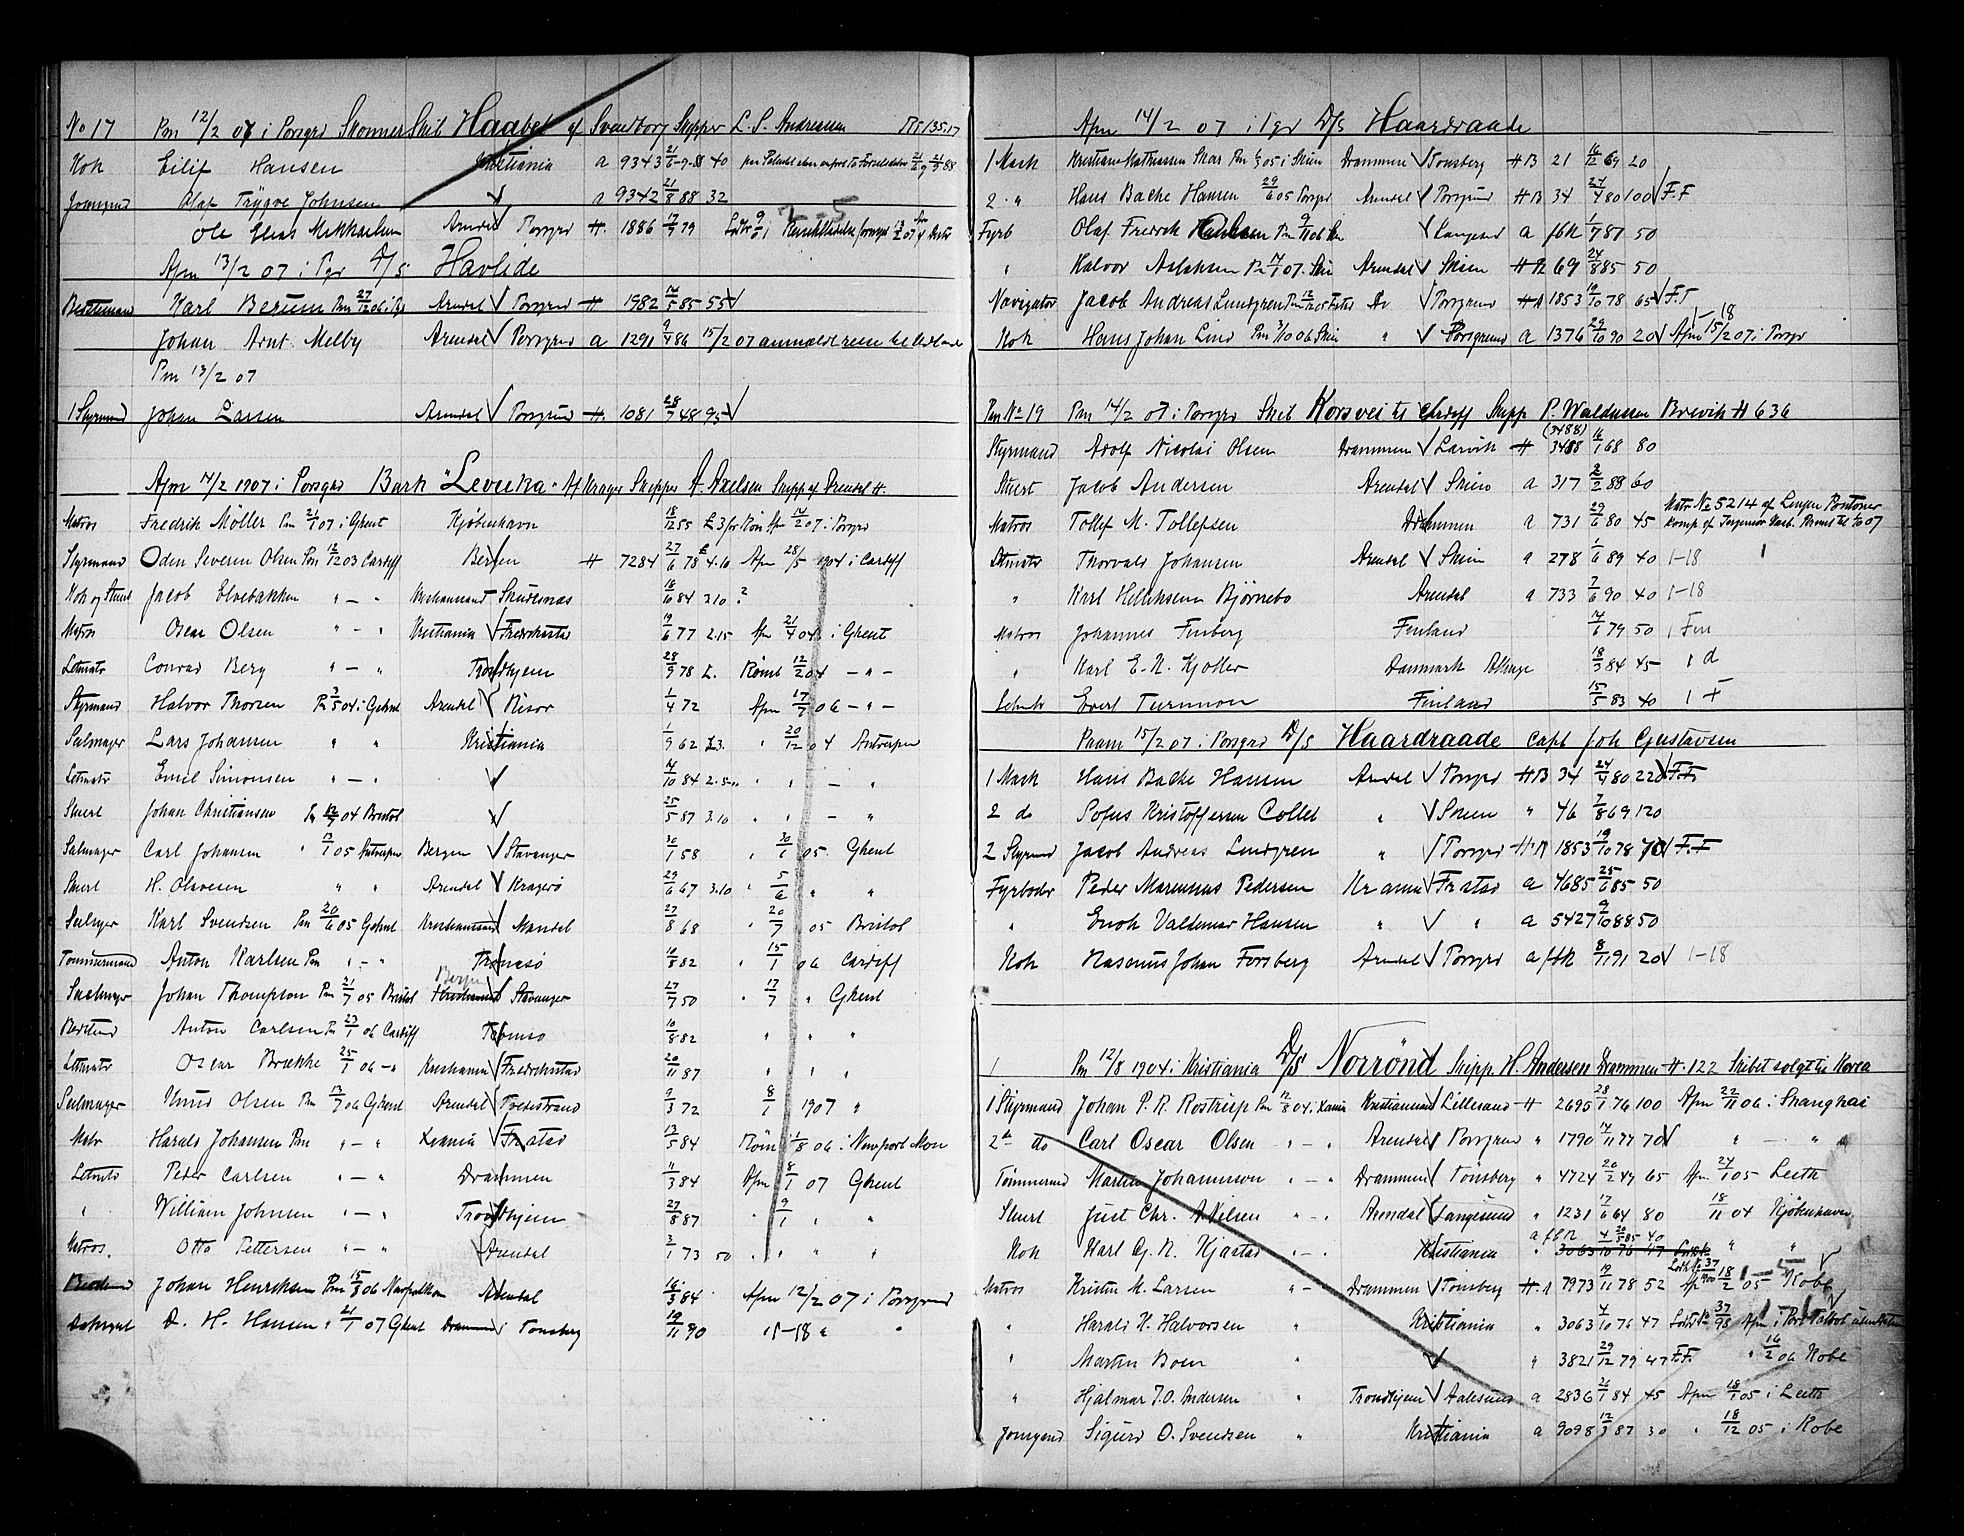 No 17 Pm 12/2 07 i Porsgrd Skonner Skib Haabet af Svendborg Skipper L. P. Andreasen
Kok Eilif Hansen Kristiania a 9343 40
Jomgmd Olaf Trygve Johnsen a 9342 21/8 88 32
Ole Elias Mikkaelsen Arendal Porsgrd H. 1886 17/9 79
Afm 13/2 07 i Pgr D/S Havlide
Bestemand Karl Bersum Pm 27/12 06 i Pgr Arendal Porsgrd H 1982 14/5 85 55
Johan Arnt Melby Arendal Porsgrd a 1291 9/4 86 15/2 07 anmeldt reise til Udlandet
Pm 13/2 07
1 Styrmand Johan Larsen Arendal Porsgrund H. 1081 28/7 48 95
Afm 14/2 1907 i Porsgrd Bark "Levuka" Af Kragerø Skipper A. Axelsen Skipp af Arendal H.
Matros Fredrik Möller Pm 21/1 07 i Ghent Kjøbenhavn 18/12 55 £3 for Røm Afm 14/2 07 i Porsgrd
Styrmand Oden Severin Olsen Pm 12/12 03 Cardiff Bergen H 7284 27/6 78 £ 4.10 Afm 28/5 1904 i Cardiff
Kok og Stuert Jacob Elvebakken " — " Kristiansand Skudesnæs 18/10 84 3.10 ?
Matros Oscar Olsen " — " Kristiania Fredrikstad 19/6 77 2.15 Afm 21/4 04 i Ghent
Letmatr Conrad Berg " — " Trondhjem 28/9 78 £. Rømt 12/2 04 — " —
Styrmand Halvor Thorsen Pm 3/5 04 i Ghent Arendal Risør 1/4 72 Afm 17/7 06 — " —
Seilmager Lars Johansen " " Kristiania 1/9 62 £3. " 20/12 04 Antwerpen
Letmatr Emil Simonsen " — " 14/10 84 2.5 " " — "
Stuert Johan Christiansen Pm 12/7 04 Bristol 25/5 87 3.10 " " — "
Seilmager Carl Johansen " 13/1 05 Antwerpen Bergen Stavanger 30/1 58 " 30/6 05 Ghent
Stuert H. Olavesen " " Arendal Kragerø 29/6 67 3.10 " 5/6 " "
Seilmger Karl Svendsen Pm 20/6 05 Ghent Kristiansand Mandal 27/8 68 " 20/7 05 Bristol
Tømmermand Anton Karlsen Pm " — " Tromsø 10/8 82 " 15/1 06 Cardiff
Seilmager Johan Thompson Pm 21/7 05 Bristol Bergen Stavanger 27/7 50 " 17/7 " Ghent
Bestmd Anton Carlsen Pm 23/1 06 Cardiff Tromsø 10/8 82 " " "
Letmatr Oscar Brække 25/1 06 — " Kristiania Fredrikstad 20/11 87 " " "
Seilmager Knud Olsen Pm 13/7 06 Ghent Arendal Tvedestrand 9/3 72 8/1 1907 "
Matr Harald Johansen Pm " — " Xania Frstad 13/5 84 Røm 1/8 06 i Newport Mon
Letmatr Peter Carlsen " — " Drammen 11/3 84 Afm 8/1 07 Ghent
" William Johnsen " — " Trondhjem 27/8 87 " 9/1 " "
Matros. Otto Pettersen " — " Arendal 2/1 73 50 " " " "
Bestmd Johan Henriksen Pm 15/3 06 Newport Mon Arendal 16/3 84 Afm 12/2 07 i Porsgrund
Dæksgut D. H. Hansen " 21/1 07 Ghent Drammen i Tønsberg 19/11 90 15-18 " "
Afm 14/2 07 i Pgr D/S Haardraade
1 Mask Kristian Mathiassen Skar Pm 05 i Skien Drammen Tønsberg H B 21 16/12 69 20
2 " Hans Bache Hansen 29/6 05 Porsgrd Arendal Porsgrund H B 34 24/4 80 100 F.F
Fyrb Olaf Fredrik Pm 9/11 06 Langesund a fbk 1/7 87 50
" Halvor Aslaksen Pm 14/1 07 Skien Arendal Skien 69 24/8 85 50
Navigatør Jacob Andreas Lundgren Porsgrund 1853 19/10 78 65 F.F
Kok Hans Johan Lund Pm 3/10 06 Skien " Porsgrund a 1376 29/10 90 20 Afm 15/2 07 i Porsgr
1-18
Pm No 19 Pm 14/2 07 i Porsgrd Skib Korsvei til Cardiff Skipp P. Waldussen Brevik H 636
Styrmand Adolf Nicolai Olsen Drammen Larvik H 3488 (3488) 16/1 68 80
Stuert Jacob Andersen Arendal Skien a 317 2/2 88 60
Matros Tollef M. Tollefsen Drammen a 731 29/6 80 45 Matr No 5214
Dkmatr Thorvald Johansen Arendal Skien a 278 1/6 89 40 1-18
" Karl Hellikssen Bjørnebo Arendal a 733 7/6 90 40 1-18
Matros Johannes Finberg Finland 14/6 79 50 1 Fin
" Karl E. N. Kjøller Danmark 18/3 84 45 1 d
Evert Finland 15/5 83 40 1 F
Paam 15/2 07 i Porsgrd D/S Haardraade Capt Joh Gustavsen
1 Mask Hans Bache Hansen Arendal Porsgrd H B 34 24/4 80 220 F.F.
2 do Sofus Kristoffersen Collet " Skien " 46 7/8 69 120
2 Styrmd Jacob Andreas Lundgren " Porsgrd 1853 19/10 78 70 F.F
Fyrbøder Peder Marinius Pedersen Kr ania Frstad a 4685 25/6 85 50
" Enok Valdemar Hansen " " a 5427 9/10 88 50
Kok Rasmus Johan Forsberg Arendal Porsgrd a fbk 8/11 91 20 1-18
1 Pm 12/8 1904 i Kristiania D/S Norrønd Skipp H. Andersen Drammen H. 122 Skibet solgt til Korea
1 Styrmand Johan P. R. Rostrup Pm 12/8 04 i Xania Kristiansand Lillesand H 2695 28/1 76 100 Afm 22/11 06 i Shanghai
2den do Carl Oscar Olsen " — " Arendal Porsgrund " 1790 14/11 77 70 " — " "
Tømmermd Martin Johannesen " — " Drammen Tønsberg " 4724 20/2 49 65 Afm 24/1 05 Leith
Stuert Just Chr. A. Nilsen " — " Arendal Langesund " 1231 17/6 64 80 18/11 04 Kjøbenhavn
Kok Karl Og. N. Hjastad " — " Kristiania a fbk 4/5 85 40 3063 4/10 76 47 " "
Matros Kristen M. Larsen " — Drammen Tønsberg H. a 7973 19/11 78 52 Afm 18/2 05 Kobe
" Harald H. Halvorsen " Kristiania " 3063 4/10 76 47 37/98 Afm i Port Talbot
" Martin Boen " " 3821 29/12 79 47 F.F. " 16/2 06 Kobe
" Hjalmar J. O. Andersen " Trondhjem Aalesund a 2836 21/1 84 45 Afm 18/1 05 i Leith
Jomgmd Sigurd O. Svendsen " Kristiania a 9098 12/3 87 30 " 18/12 05 i Kobe